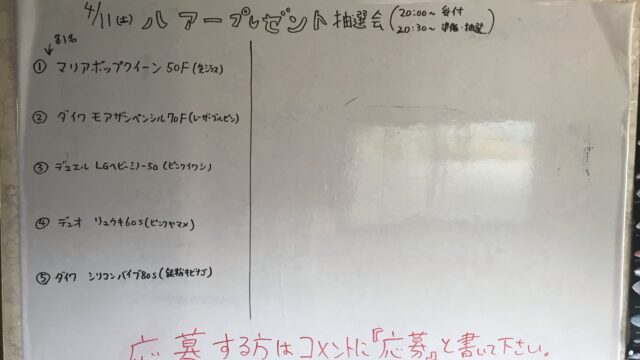 4/11(土) ルアープレゼント抽選会 (20:00〜 受付
20:30〜 準備・抽選)
各1名
① マリアポップクイーン50F(生シラス)
② ダイワ モアザンペンシル70F(レーザーブルピン)
③ デュエル LGヘビーミノー50 (ピンクイワシ)
④ デュオ リュウキ60S(ピンクヤマメ)
⑤ ダイワ シリコンバイブ80S(銀粉キビナゴ)
応募する方はコメントに『応募』と書いて下さい。